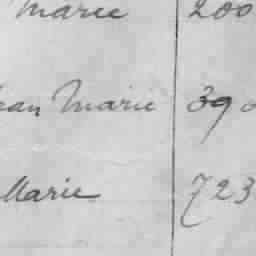 Marie 200
ean Marie 390
Marie 723